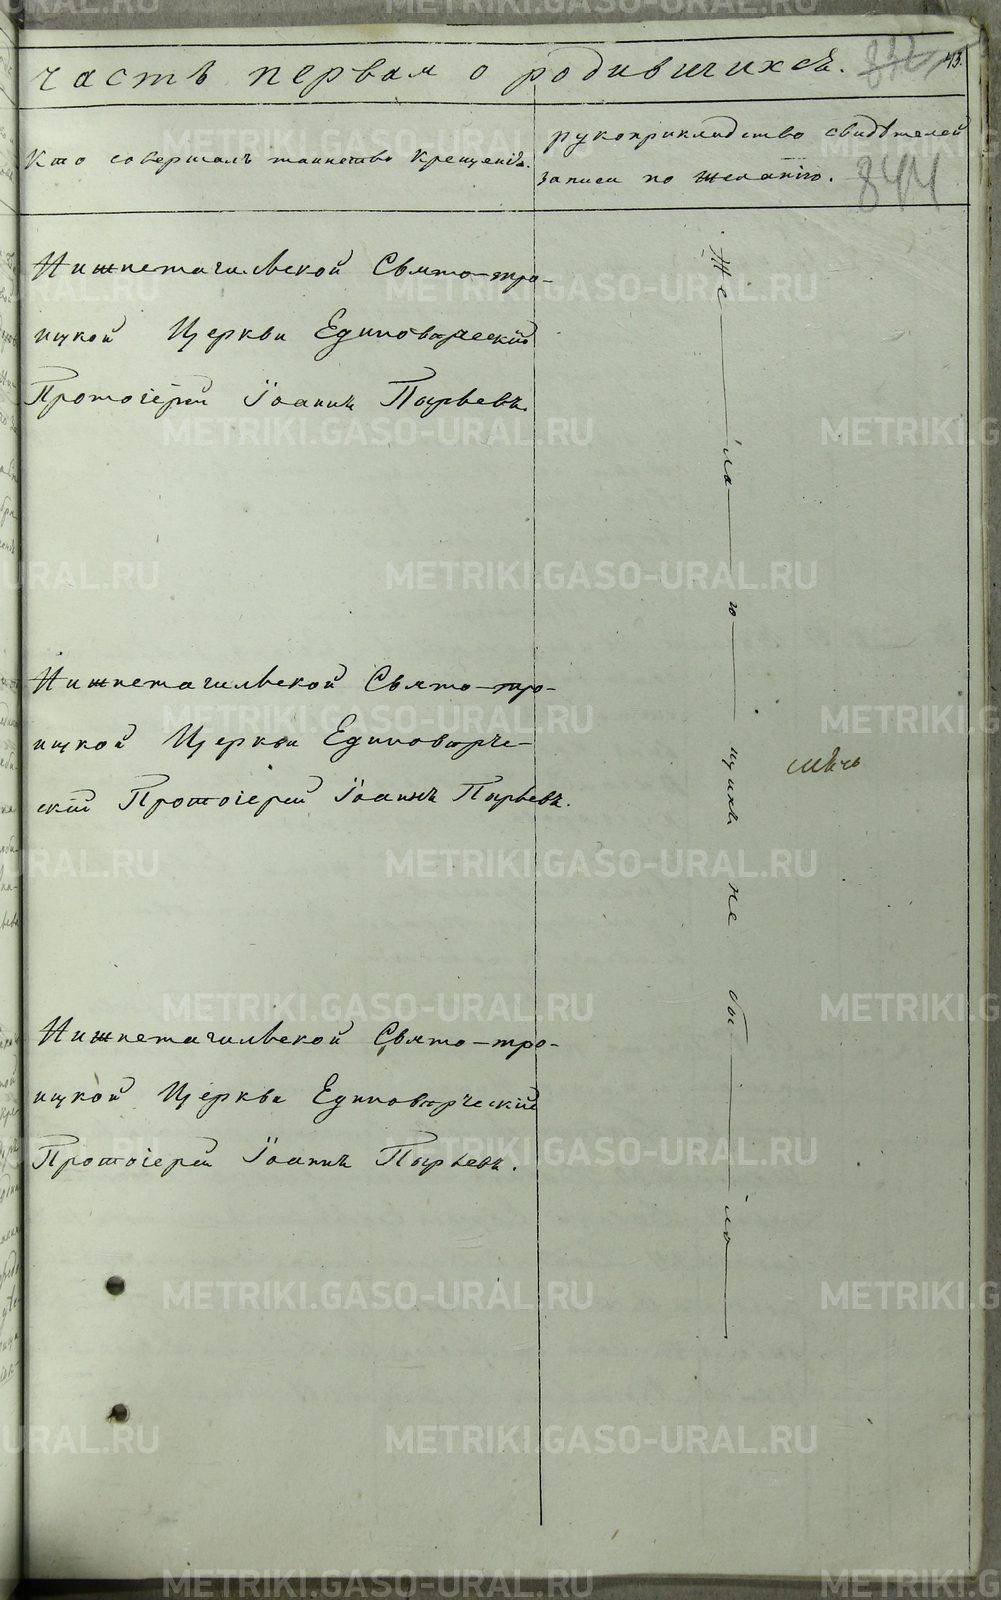 часть первая о родившихся.
43.
844
Кто совершалъ таинство крещенія.
рукоприкладство свидѣтелей
записи по желанію.
Нижнетагильской Свято-тро-
ицкой Церкви Единовѣрческій
Протоіерей Іоаннъ Пырьевъ.
Нижнетагильской Свято-тро-
ицкой Церкви Единовѣрче-
скій Протоіерей Іоаннъ Пырьевъ.
Нижнетагильской Свято-тро-
ицкой Церкви Единовѣрческій
Протоіерей Іоаннъ Пырьевъ.
Же—ла—ю—щихъ не бы—ло—
METRIKI.GASO-URAL.RU